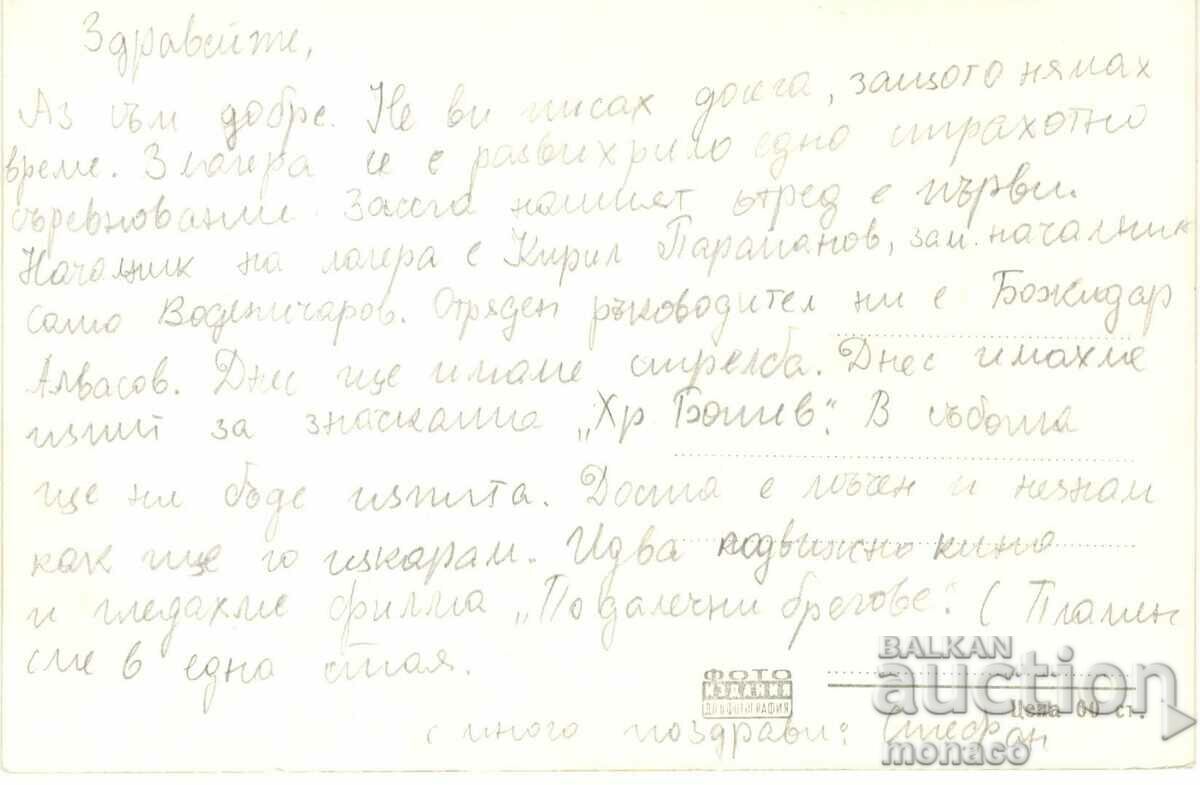 Здравейте,
Аз съм добре. Не ви писах досега, защото нямах
време. В лагера се е развихрило едно страхотно
съревнование. Засега нашият отред е първи.
Началник на лагера е Кирил Парапанов, зам. началник
само Воденичаров. Отряден ръководител ни е Божидар
Алвасов. Днес ще имаме стрелба. Днес имахме
изпит за значката „Хр Ботев". В събота
ще ни бъде изпита. Доста е мъчен и незнам
как ще го изкарам. Идва подвижно кино
и гледахме филма „По далечни брегове". С Пламен
сме в една стая.
с много поздрави: Стефан
ФОТО
ИЗДАНИЯ
ДП ФОТОГРАФИЯ
Цена 60 ст.
BALKAN
auction
monaco